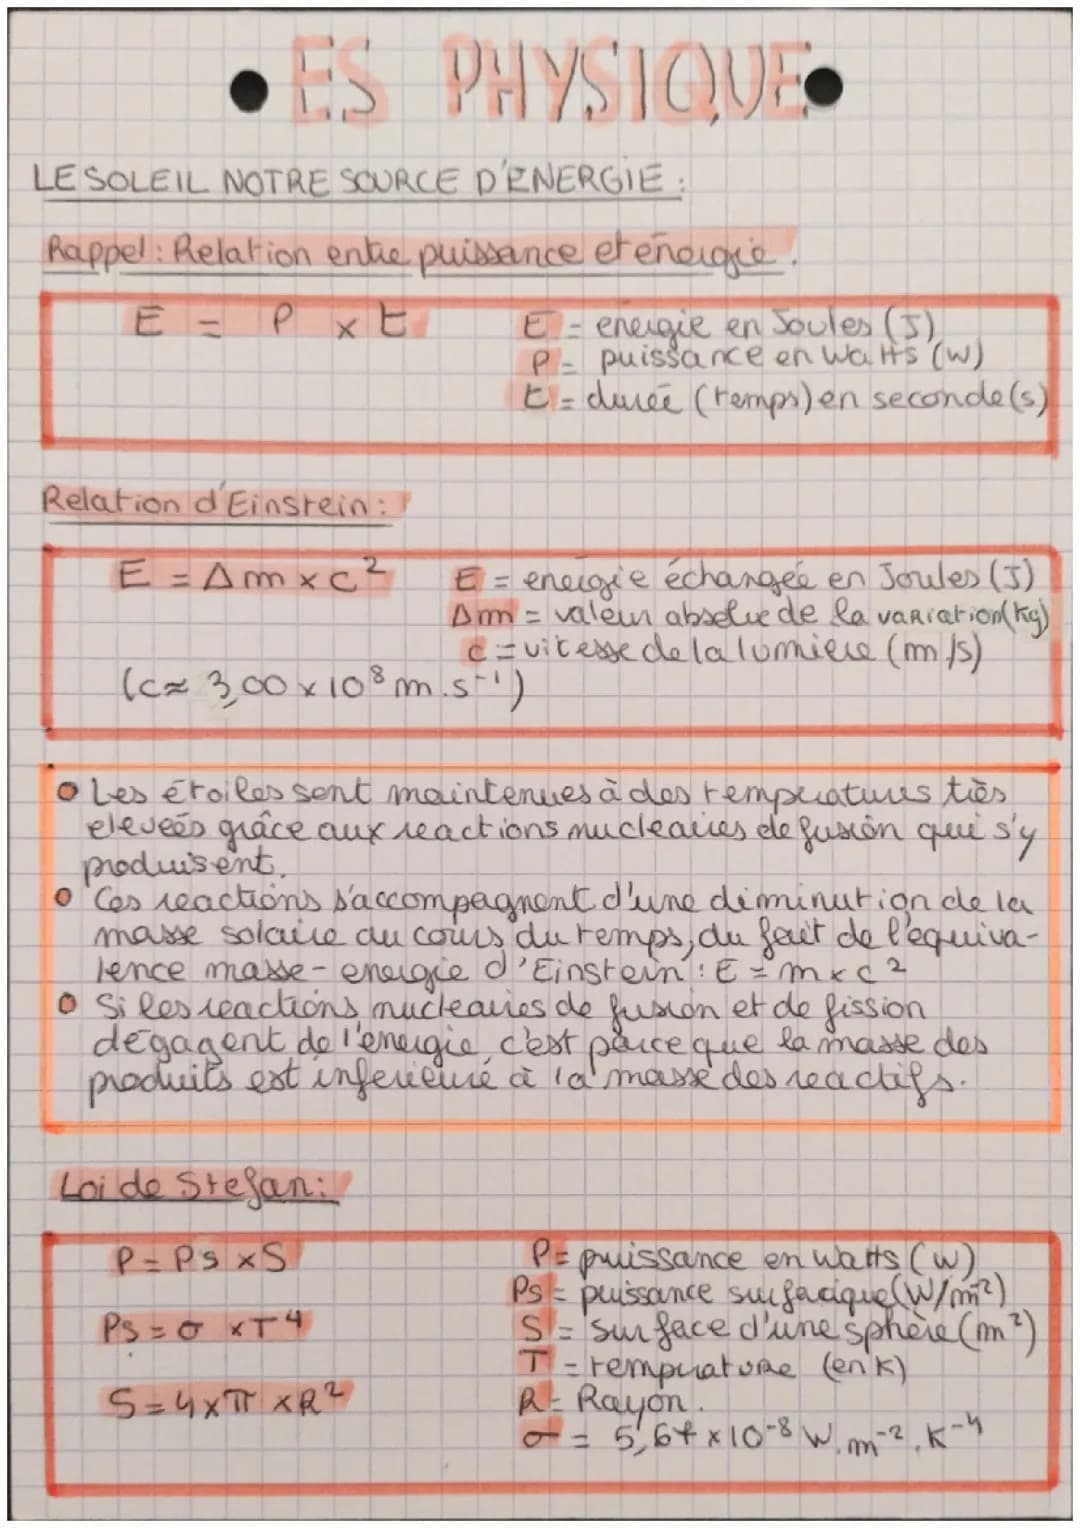 ES PHYSIQUE
LE SOLEIL NOTRE SOURCE D'ÉNERGIE :
Rappel : Relation entre puissance et énergie.
E = P x t
E = énergie en Joules (J)
P = puissance en Watts (W)
t = durée (temps) en seconde (s)
Relation d'Einstein :
E = Δm x c²
E = énergie échangée en Joules (J)
Δm = valeur absolue de la variation (kg)
c = vitesse de la lumière (m/s)
(c ≈ 3,00 x 10⁸ m.s⁻¹)
Les étoiles sont maintenues à des températures très
élevées grâce aux réactions nucléaires de fusion qui s'y
produisent.
Ces réactions s'accompagnent d'une diminution de la
masse solaire au cours du temps, du fait de l'équiva-
lence masse-énergie d'Einstein : E = m x c²
Si les réactions nucléaires de fusion et de fission
dégagent de l'énergie, c'est parce que la masse des
produits est inférieure à la masse des réactifs.
Loi de Stefan :
P = Ps x S
P = puissance en Watts (W)
Ps = puissance surfacique (W/m⁻²)
Ps = σ x T⁴
S = surface d'une sphère (m²)
T = température (en K)
S = 4 x π x R²
R = Rayon.
σ = 5,67 x 10⁻⁸ W.m⁻².K⁻⁴